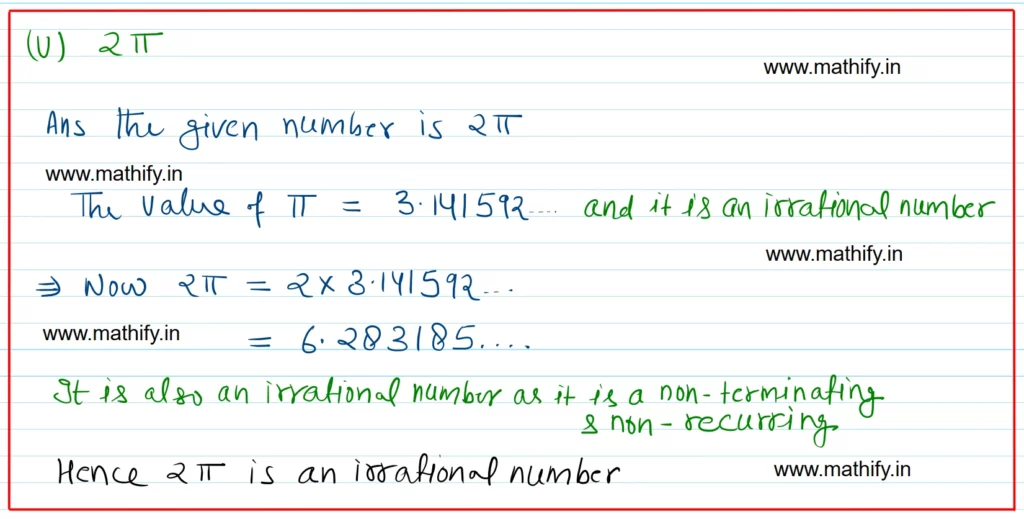 (v) 2π
www.mathify.in
Ans The given number is 2π
www.mathify.in
The value of π = 3.141592.... and it is an irrational number
www.mathify.in
⇒ Now 2π = 2 × 3.141592...
www.mathify.in
= 6.283185....
It is also an irrational number as it is a non-terminating
& non-recurring.
Hence 2π is an irrational number
www.mathify.in